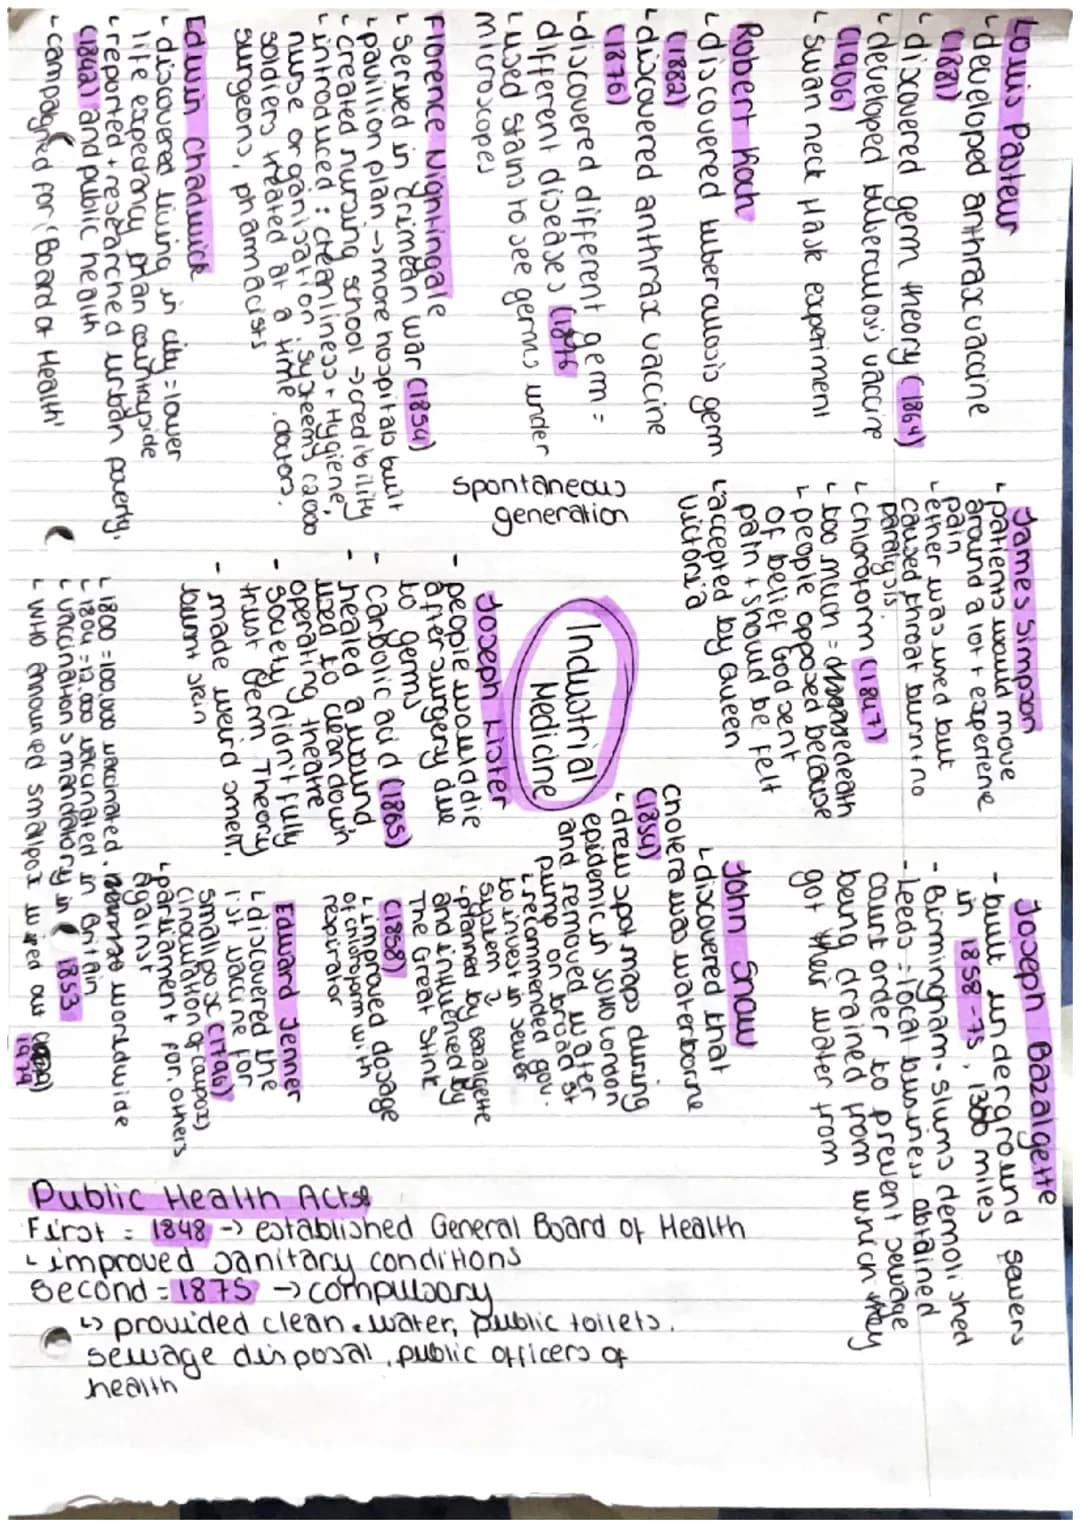 Louis Pasteur
↳ developed anthrax vaccine
(1881)
↳ discovered germ theory (1864)
↳ developed tuberculosis vaccine
(1906)
↳ swan neck flask experiment
Robert Koch
↳ discovered tuberculosis germ
(1882)
↳ discovered anthrax vaccine
(1876)
↳ discovered different germ =
different diseases (1876
↳ used stains to see germs under
microscopes
Florence Nightingale
↳ served in Crimean war (1854)
↳ pavilion plan → more hospitals built
↳ created nursing school → credibility
↳ introduced: cleanliness + Hygiene,
nurse organisation systeem, (2000
soldiers treated at a time, doctors,
surgeons, pharmacists
Edwin Chadwick
↳ discovered living in city = lower
life expectancy than countryside
↳ reported + researched urban poverty,
(1842) and public health
↳ campaigned for 'Board of Health'
James Simpson
↳ patients would move
around a lot + experiene
pain
↳ ether was used but
caused throat burn + no
paralysis
↳ chloroform (1847)
↳ too much = death
↳ people opposed because
of belief God sent
pain + should be felt
↳ accepted by Queen
victoria
spontaneous
generation
Industrial
Medicine
Joseph Lister
- people would die
after surgery due
to germs
- carbolic acid (1865)
- healed a wound
used to clean down
operating theatre
- society didn't fully
trust Germ Theory
- made weird smell,
burnt skin
Joseph Bazalgette
- built underground sewers
in 1858-75, 1300 miles
- Birmingham - slums demolished
- Leeds = local business obtained
court order to prevent sewage
being drained from which they
got their water from
John Snow
↳ discovered that
cholera was waterborne
(1854)
↳ drew spot maps during
epidemic in SOHO London
and removed water
pump on broad st
↳ recommended gov.
to invest in sewer
system
↳ planned by bazalgette
and influenced by
The Great Stink
(1858)
↳ improved dosage
of chloroform with
respirator
Edward Jenner
↳ discovered the
1st vaccine for
smallpox (1796)
(inoculation of cowpox)
↳ parliament for, others
against
↳ 1800 = 100,000 vaccinated, worldwide
↳ 1804 = 12,000 vaccinated in Britain
↳ vaccinations mandatory in 1853
↳ WHO announced smallpox wiped out
1979
Public Health Acts
First = 1848 → established General Board of Health
↳ improved sanitary conditions
Second = 1875 → compulsory
↳ provided clean water, public toilets,
sewage disposal, public officers of
health